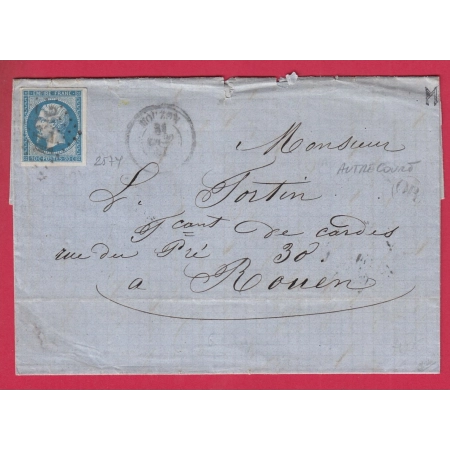 EMPIRE FRANC
MOUZON
Monsieur
2574
AUTRECOURT
L. Fortin
Fcant de cardes
rue du Pré 30
a Rouen